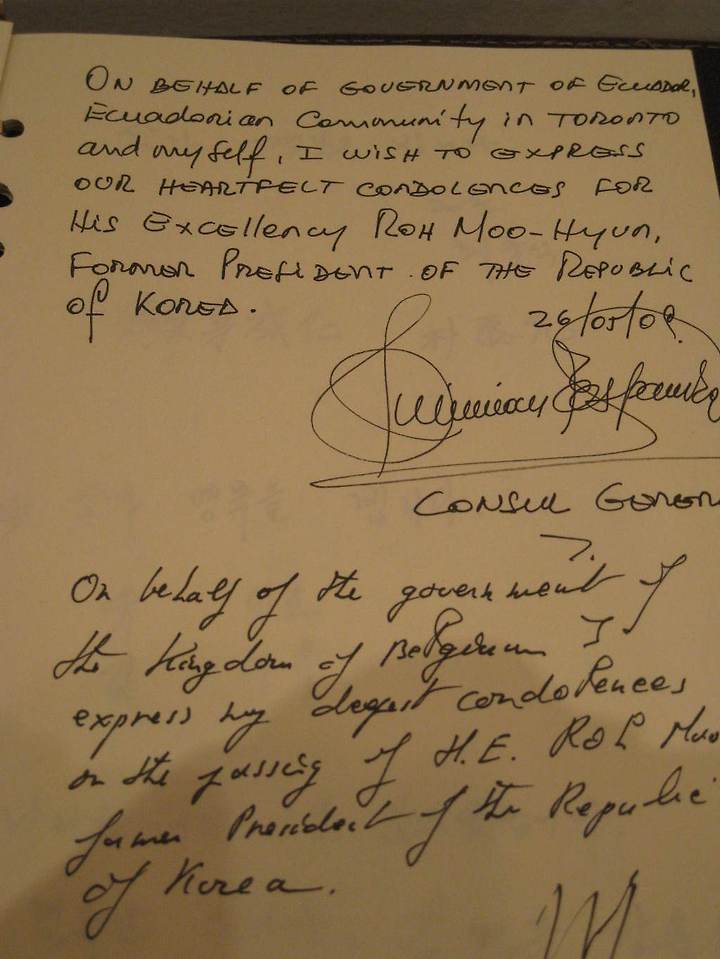 ON BEHALF OF GOVERNMENT OF ECUADOR,
Ecuadorian Community in TORONTO
and myself, I WISH TO EXPRESS
OUR HEARTFELT CONDOLENCES FOR
His Excellency ROH MOO-HYUN,
FORMER PRESIDENT OF THE REPUBLIC
of KOREA.
26/05/09.
CONSUL GENER
On behalf of the government of
the Kingdom of Belgium I
express my deepest condolences
on the passing of H.E. ROH Moo
former President of the Republic
of Korea.